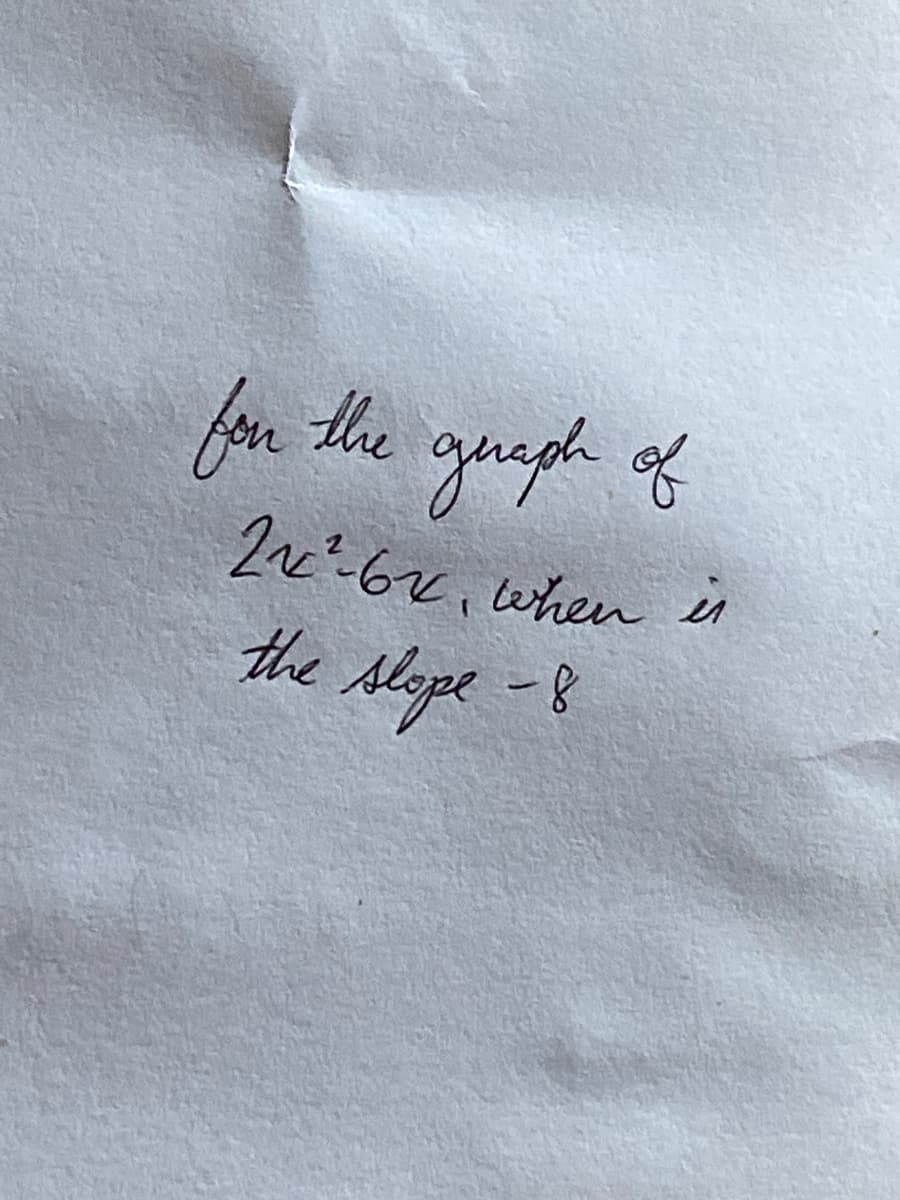 for the graph of
2x²-6x, when is
the slope -8